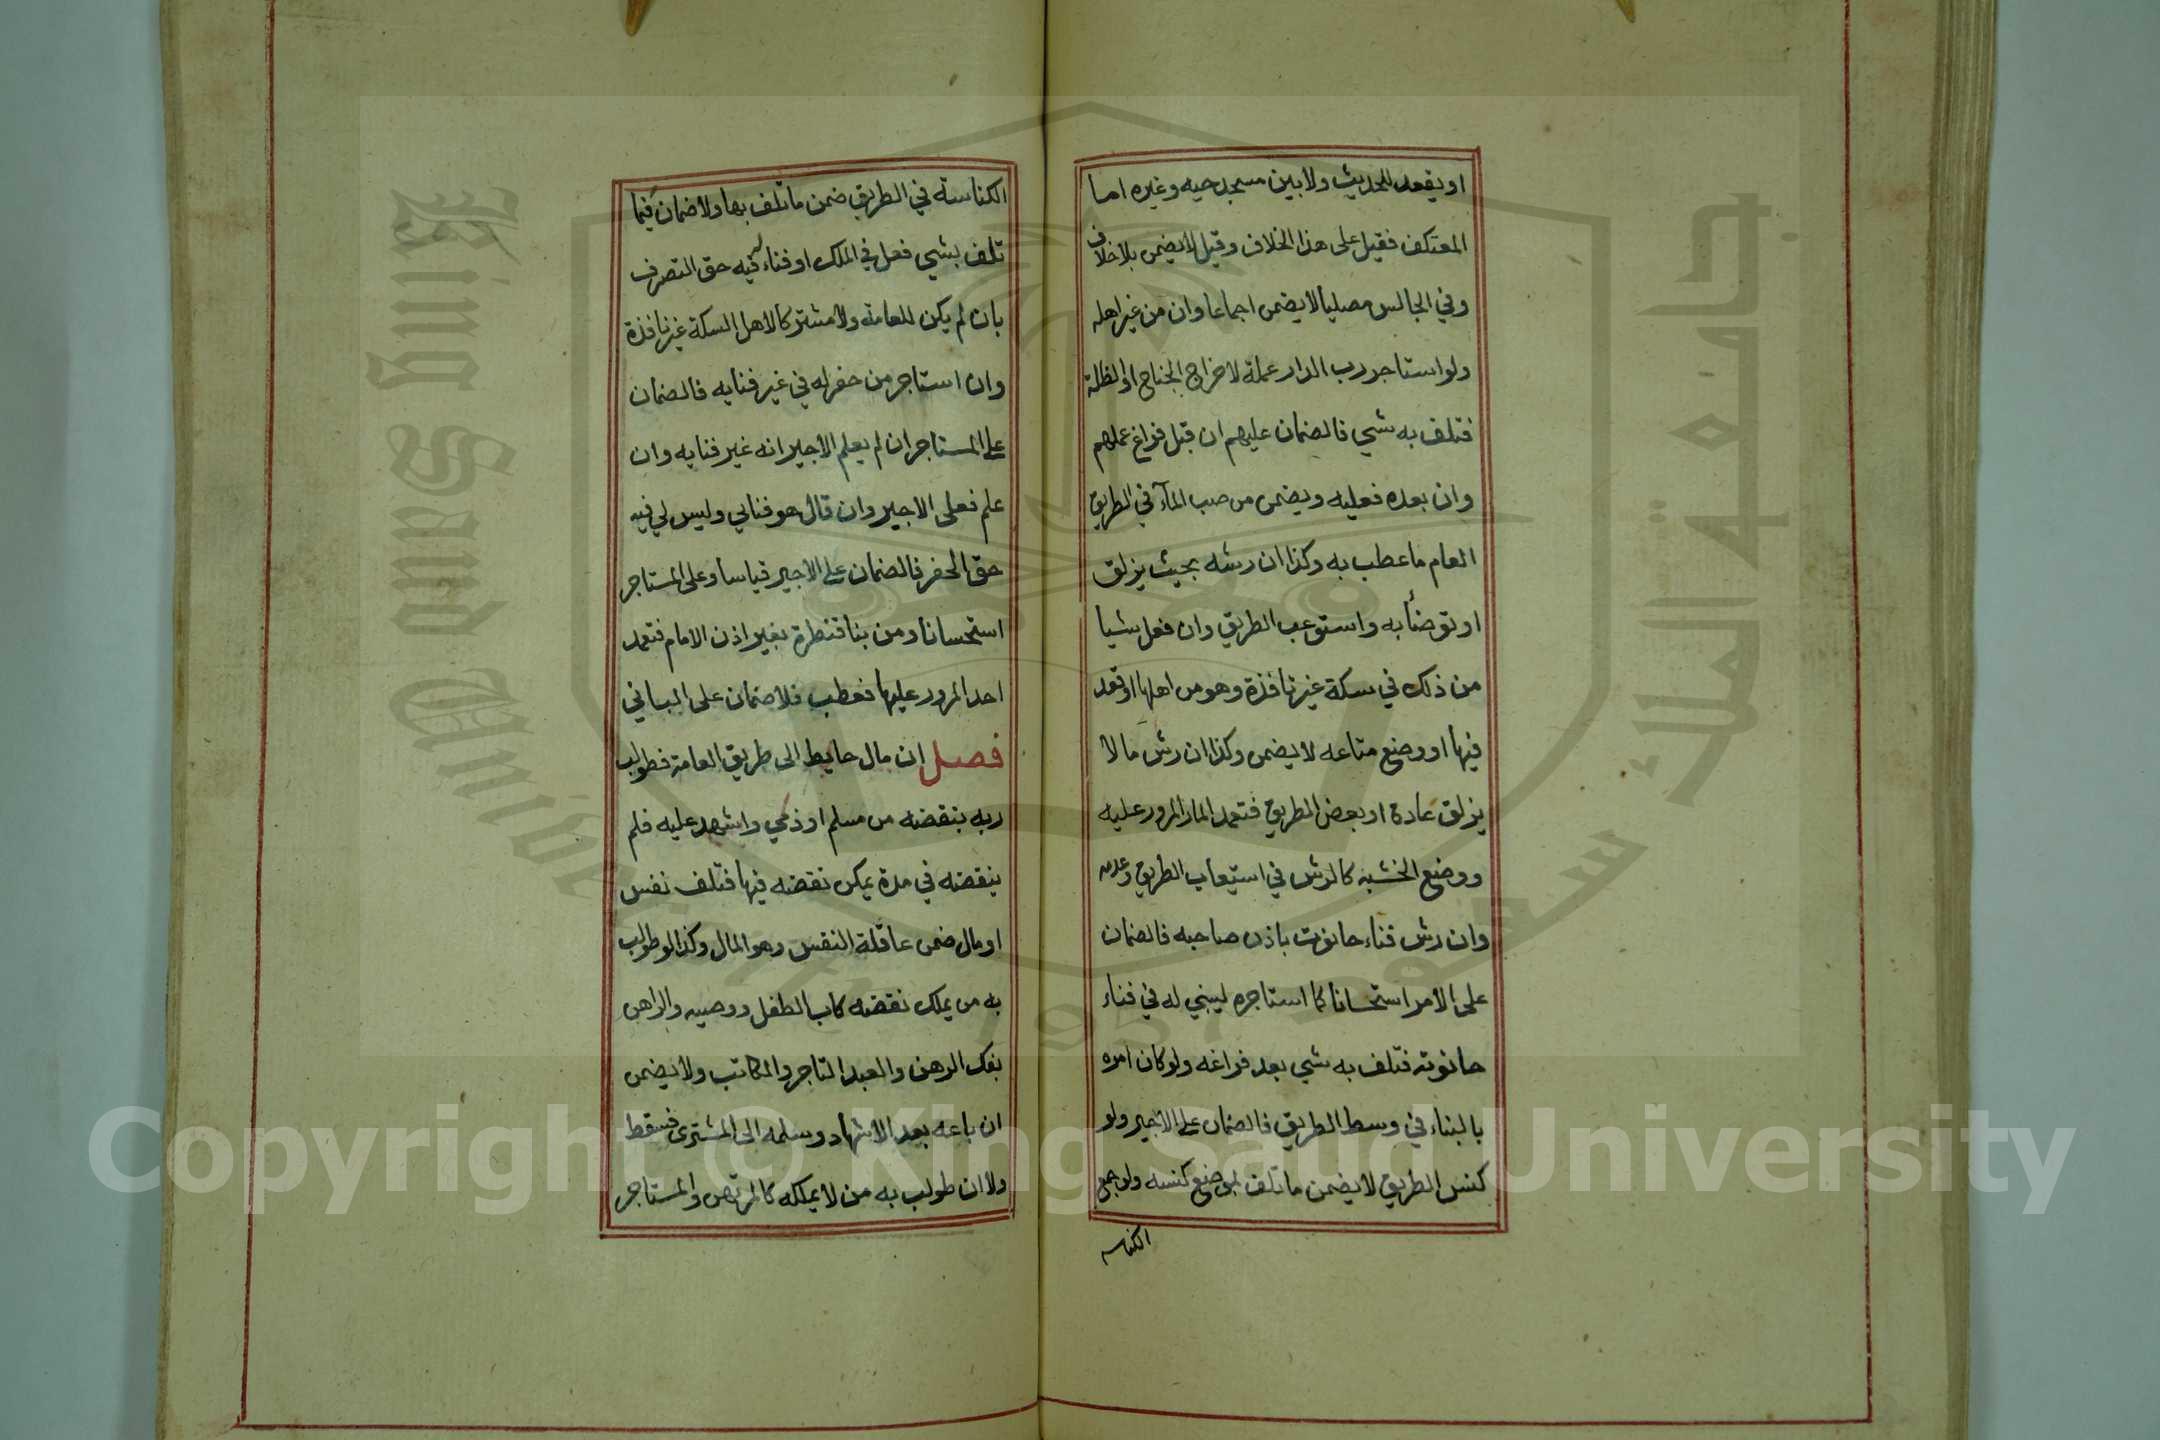 او يقعد للحديث ولا بين مسجد حيه وغيره اما
المعتكف فقيل على هذا الخلاف وقيل لا يضمن بلا خلاف
وفي الجالس مصليا لا يضمن اجماعا وان من غير اهله
ولو استاجر رب الدار عملة لاخراج الجناح او الظلة
فتلف به شي فالضمان عليهم ان قبل فراغ عملهم
وان بعده فعليه ويضمن من صب المآء في الطريق
العام ما عطب به وكذا ان رشه بحيث يزلق
او توضأ به واستوعب الطريق وان فعل شيا
من ذلك في سكة غير نافذة وهو من اهلها او قعد
فيها او وضع متاعه لا يضمن وكذا ان رش ما لا
يزلق عادة او بعض الطريق فتعمد المار المرور عليه
ووضع الخشبه كالرش في استيعاب الطريق وعدمه
وان رش فناء حانوت باذن صاحبه فالضمان
على الامر استحسانا كما استاجره ليبني له في فناء
حانوته فتلف به شي بعد فراغه ولو كان امره
بالبناء في وسط الطريق فالضمان على الاجير ولو
كنس الطريق لا يضمن ما تلف بموضع كنسه ولو جمع
الكناسه
الكناسته في الطريق ضمن ما تلف بها ولا ضمان فيما
تلف بشي فعل في الملك او فناء له فيه حق التصرف
بان لم يكن للعامة ولا مشتركا لاهل السكة غير نافذة
وان استاجر من حفر له في غير فنايه فالضمان
على المستاجر ان لم يعلم الاجير انه غير فنايه وان
علم فعلى الاجير وان قال هو فنائي وليس لي فيه
حق الحفر فالضمان على الاجير قياسا وعلى المستاجر
استحسانا ومن بنا قنطرة بغير اذن الامام فتعمد
احد المرور عليها فعطب فلا ضمان على الباني
فصل ان مال حايط الى طريق العامة فطولب
ربه بنقضه من مسلم او ذمي واشهد عليه فلم
ينقضه في مدة يمكن نقضه فيها فتلف نفس
او مال ضمن عاقلة النفس وهو المال وكذا لو طولب
به من يملك نقضه كاب الطفل ووصيه والراهن
بفك الرهن والعبد التاجر والمكاتب ولا يضمن
ان باعه بعد الاشهاد وسلمه الى المشترى فسقط
ولا ان طولب به من لا يملكه كالمرتهن والمستاجر
King Saud University
جامعة الملك سعود
Copyright © King Saud University